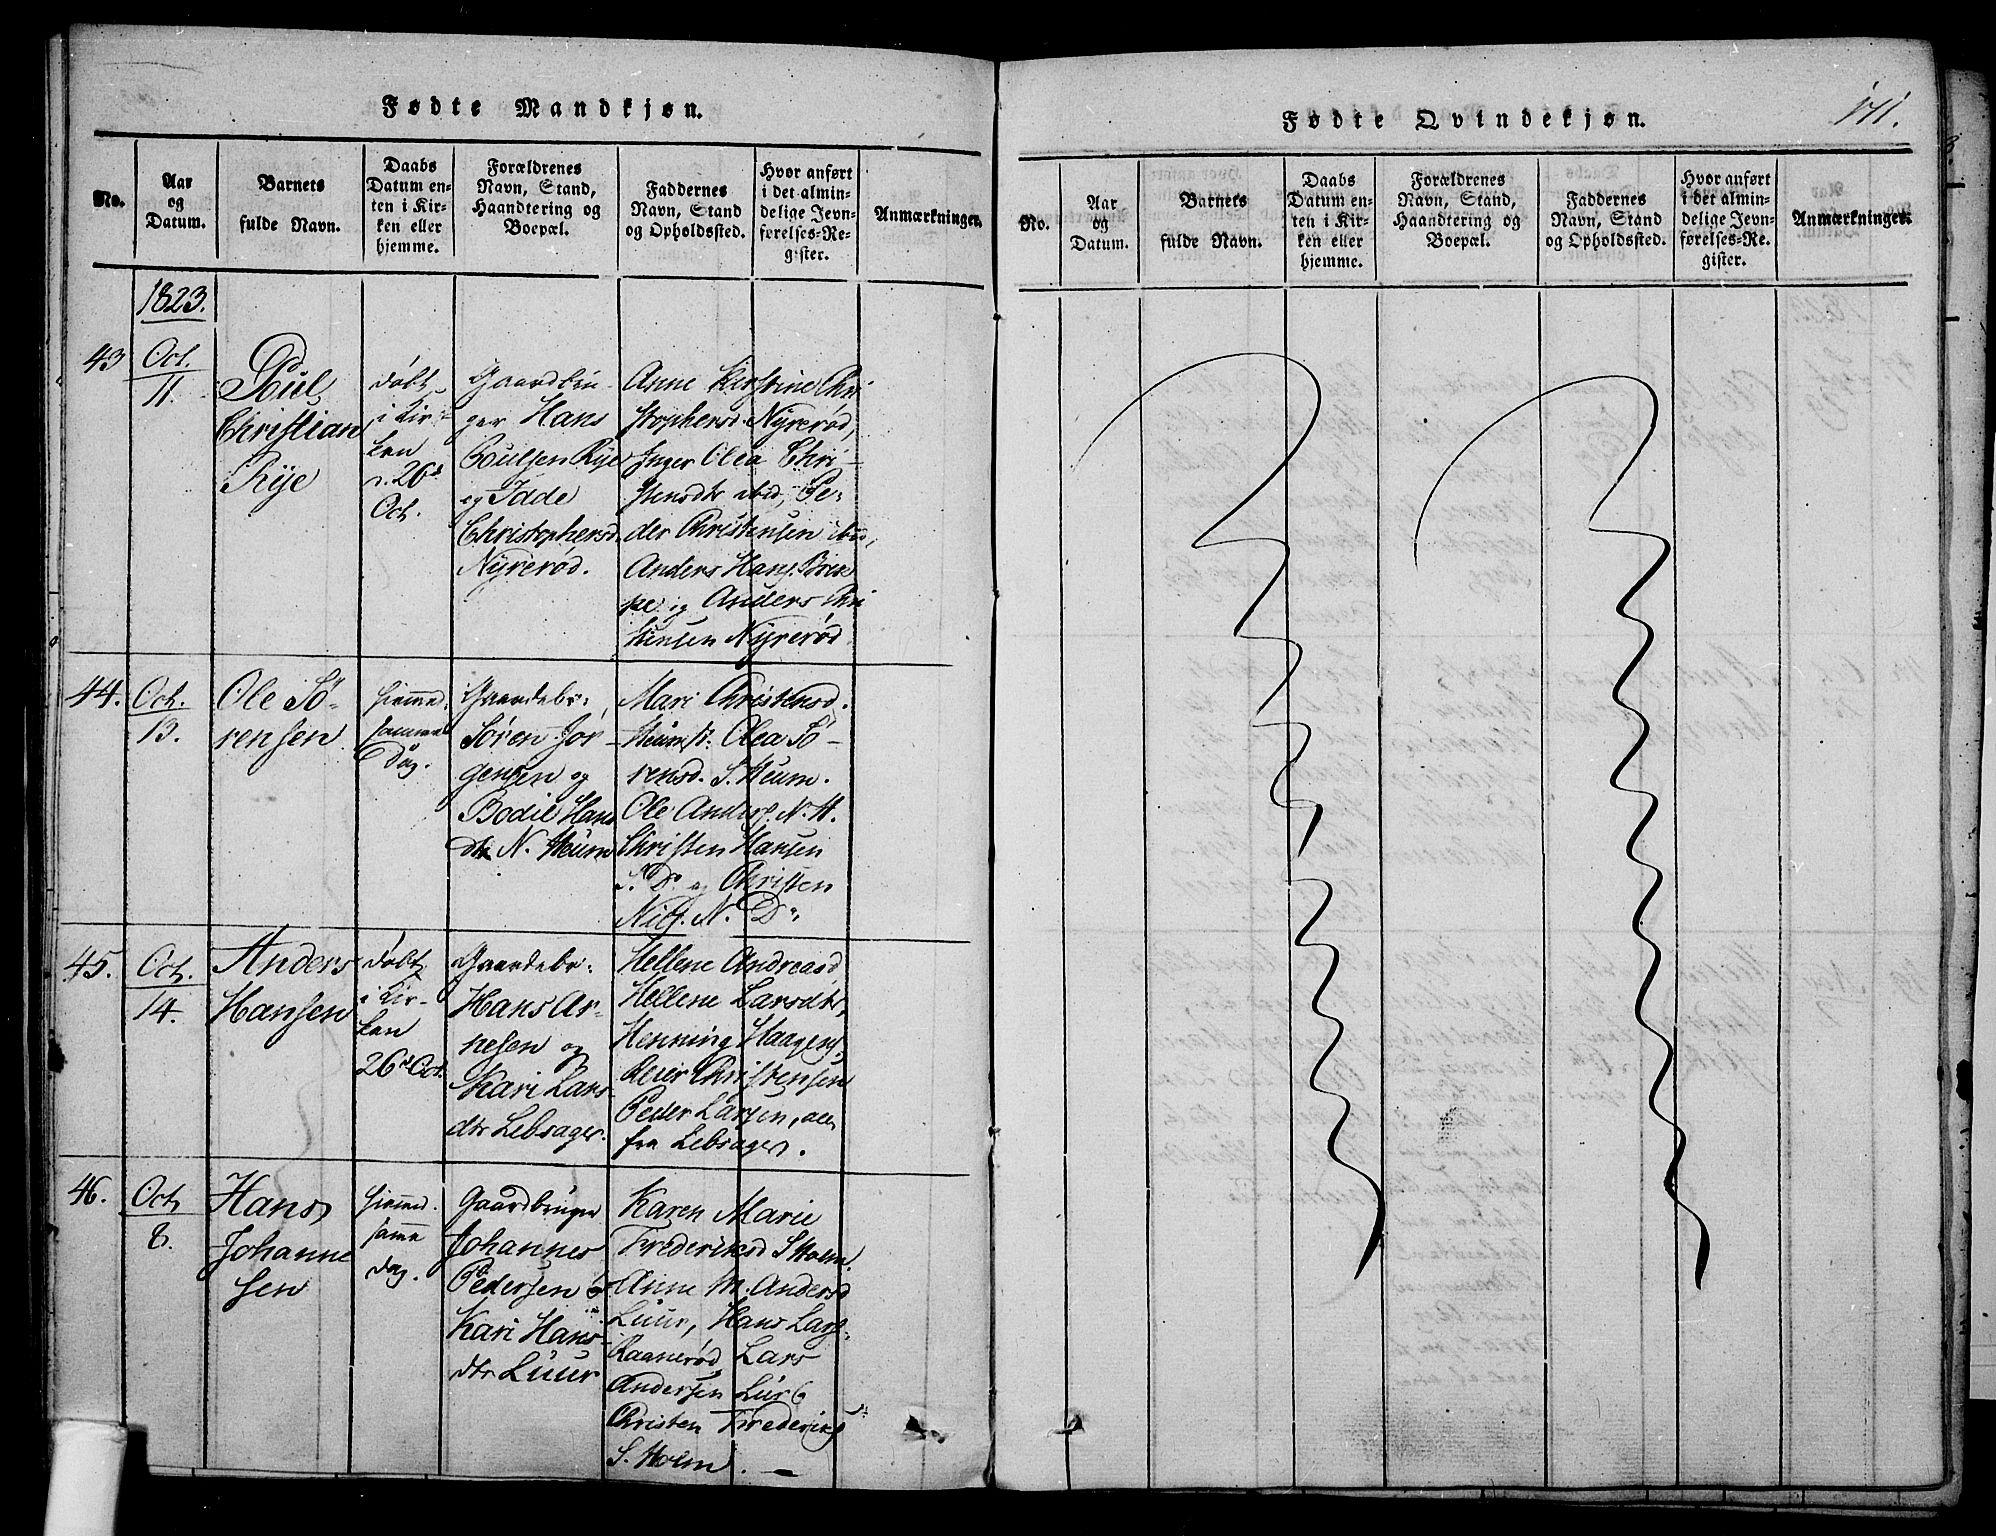 Fødte Mandkjøn.
No.
Aar
og
Datum.
Barnets
fulde Navn.
Daabs
Datum en-
ten i Kir-
ken eller
hjemme.
Forældrenes
Navn, Stand,
Haandtering og
Boepæl.
Faddernes
Navn, Stand
og Opholdssted.
Hvor anført
i det almin-
delige Jevn-
førelses-Re-
gister.
Anmærkninger.
1823.
43
Oct.
11.
Poul
Christian
Rÿe
døbt
i Kir-
ken
d. 26d
Oct.
Gaardbru-
ger Hans
Poulsen Rÿe
og Idde
Christophersd.
Nÿrerød.
Anne Kirstine Chri
stophersd. Nÿrerød,
Inger Olea Chri-
stensdtr ibid, Pe-
der Christensen ibid,
Anders Hans.
og Anders Chri
stensen Nÿrerød
44.
Oct.
13.
Ole Sö-
rensen
hiemme
samme
Dag.
Gaardebr.
Søren Jør-
gensen og
Bodil Hans
dtr N. Heum
Mari Christensd.
Heum. Olea Sö-
rensd. S. Heum.
Ole Anders. N. H.
Christen Hansen
S. Do og Christen
Niels. N. Do
45.
Oct.
14.
Anders
Hansen
døbt
i Kir-
ken
26d Oct.
Gaardebr.
Hans Ar-
nesen og
Kari Lars-
dtr Lebsager.
Hellene Andreasd
Hellene Larsdtr,
Henning Haagens.
Christensen
Peder Larsen, alle
fra Lebsager.
46.
Oct
8.
Hans
Johanne
sen
hiemmed.
samme
dag.
Gaardbruger
Johannes
Pedersen &
Kari Hans-
dtr Luur
Karen Marie
Frederiksd S Holm.
Anne M. Andersd
Luur, Hans Lars.
Raanerød Lars
Andersen Lur &
Christen Frederiks
S. Holm.
Fødte Qvindekjøn.
171.
No.
Aar
og
Datum.
Barnets
fulde Navn.
Daabs
Datum en-
ten i Kir-
ken eller
hjemme.
Forældrenes
Navn, Stand,
Haandtering og
Boepæl.
Faddernes
Navn, Stand
og Opholdssted.
Hvor anført
i det almin-
delige Jevn-
førelses-Re-
gister.
Anmærkninger.